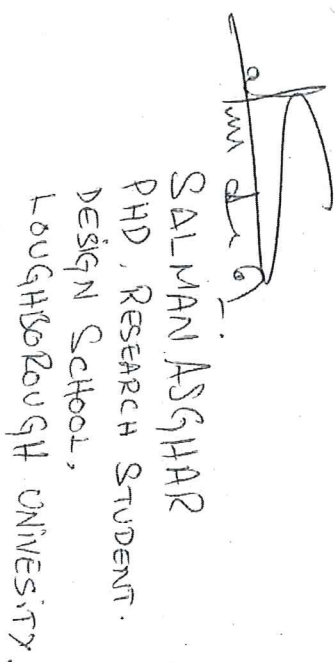 SALMAN ASGHAR
PHD. RESEARCH STUDENT.
DESIGN SCHOOL,
LOUGHBOROUGH UNIVESITY.